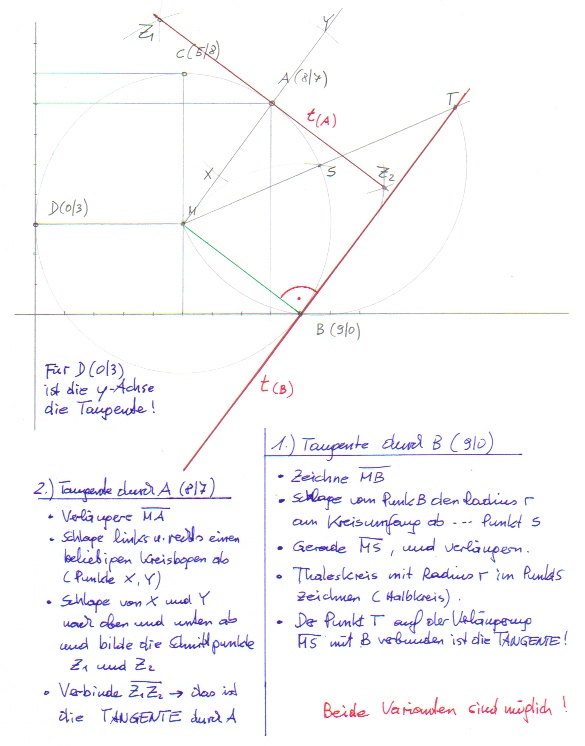 Z1
Y
C(5/8)
A(8/7)
t(A)
T
X
S
Z2
D(0/3)
M
B(9/0)
t(B)
Für D(0/3)
ist die y-Achse
die Tangente!
1.) Tangente durch B(9/0)
• Zeichne MB
• Schlage vom Punkt B den Radius r
am Kreisumfang ab --- Punkt S
• Gerade MS, und verlängern.
• Thaleskreis mit Radius r im Punkt S
zeichnen (Halbkreis).
• Der Punkt T auf der Verlängerung
MS mit B verbunden ist die TANGENTE!
2.) Tangente durch A(8/7)
• Verlängere MA
• Schlage links u. rechts einen
beliebigen Kreisbogen ab
(Punkte X, Y)
• Schlage von X und Y
nach oben und unten ab
und bilde die Schnittpunkte
Z1 und Z2
• Verbinde Z1Z2 → das ist
die TANGENTE durch A
Beide Varianten sind möglich!